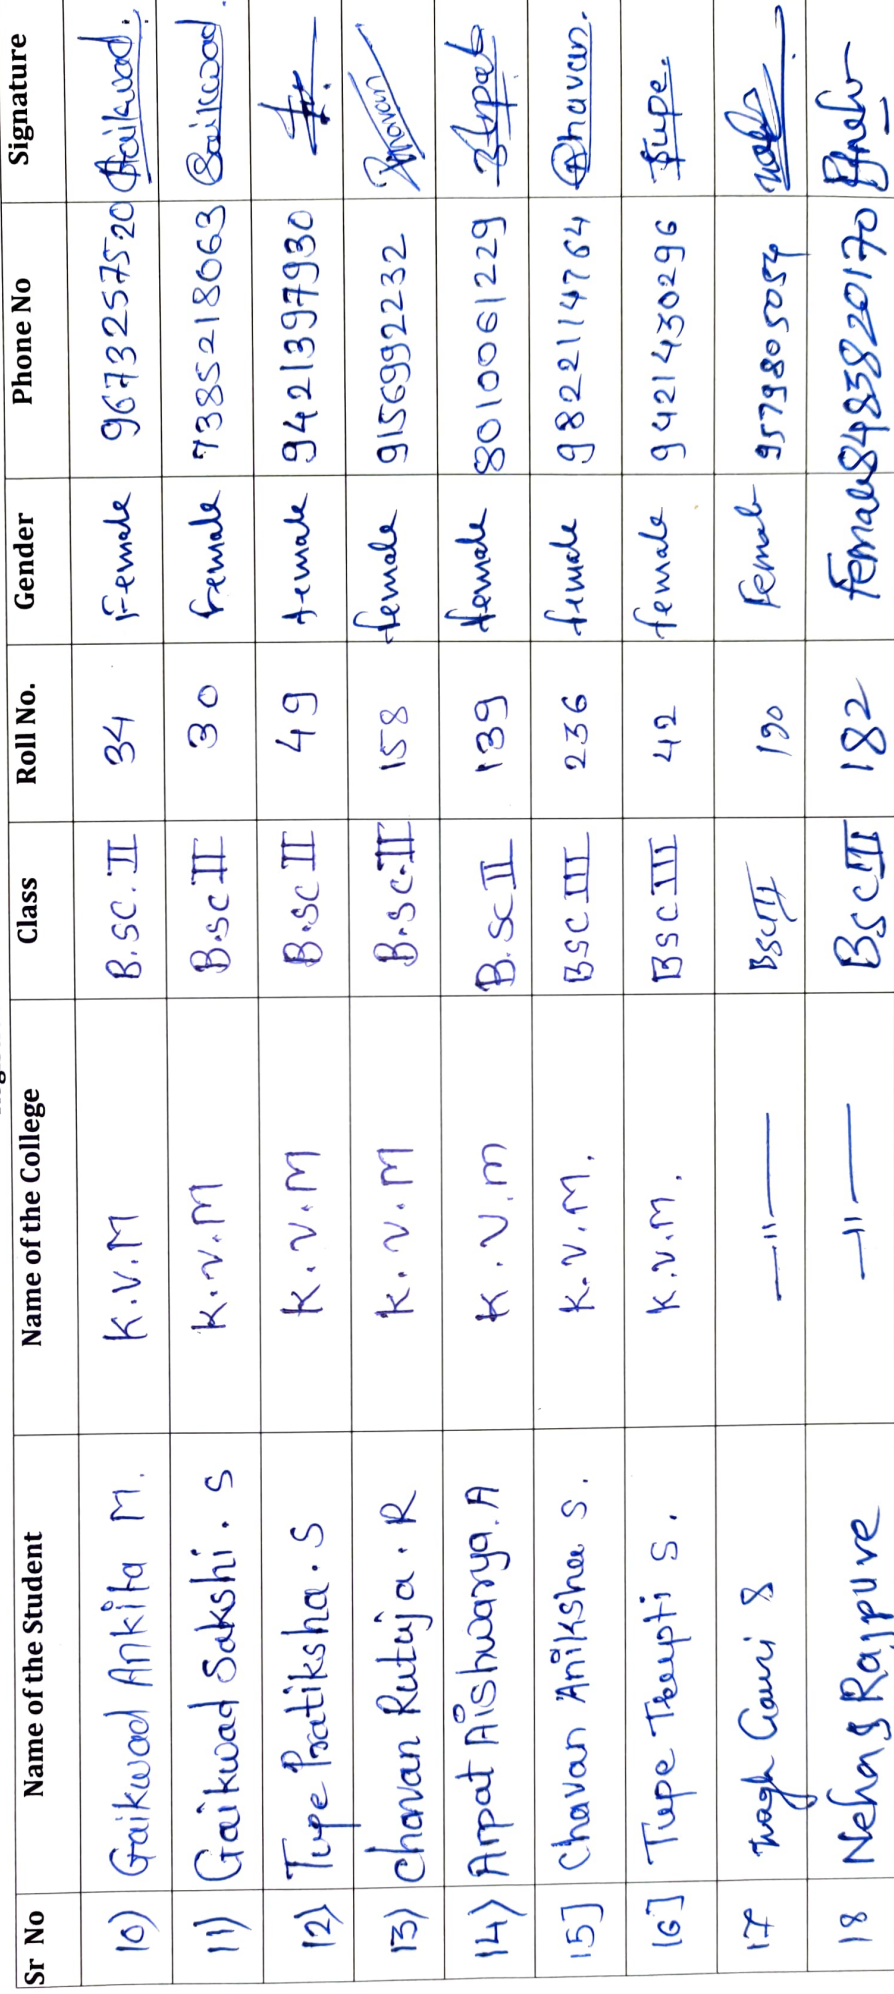 Sr No Name of the Student Name of the College Class Roll No. Gender Phone No Signature
10) Gaikwad Ankita M. K.V.M B.SC. II 34 Female 9673257520 Gaikwad.
11) Gaikwad Sakshi. S K.V.M B.SC II 30 Female 7385218063 Gaikwad
12) Tupe Pratiksha. S K.V.M B.SC II 49 female 9421397930
13) Chavan Rutuja. R K.V.M B.SC.II 158 female 9156992232 Chavan
14) Arpat Aishwarya. A K.V.m B.SC II 139 female 8010061229 Arpat
15] Chavan Aniksha S. K.V.M. BSC III 236 female 9822114764 Chavan.
16] Tupe Trupti S. K.V.M. BSC III 42 female 9421430296 Tupe.
17 Wagh Gauri S —"— BSCIII 190 Female 9579805054
18 Neha S Rajpure —"— BSCIII 182 Female 8483820170